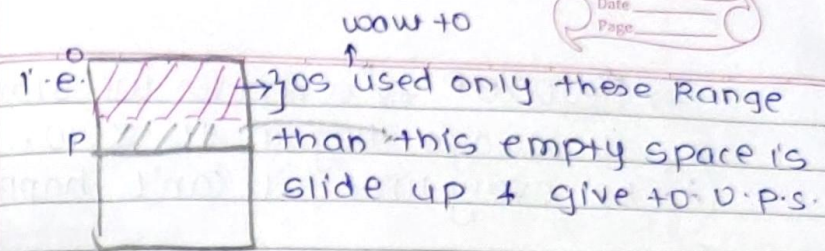 Date
Page
want to
0
i.e. → os used only these Range
P than this empty space is
slide up & give to U.P.S.